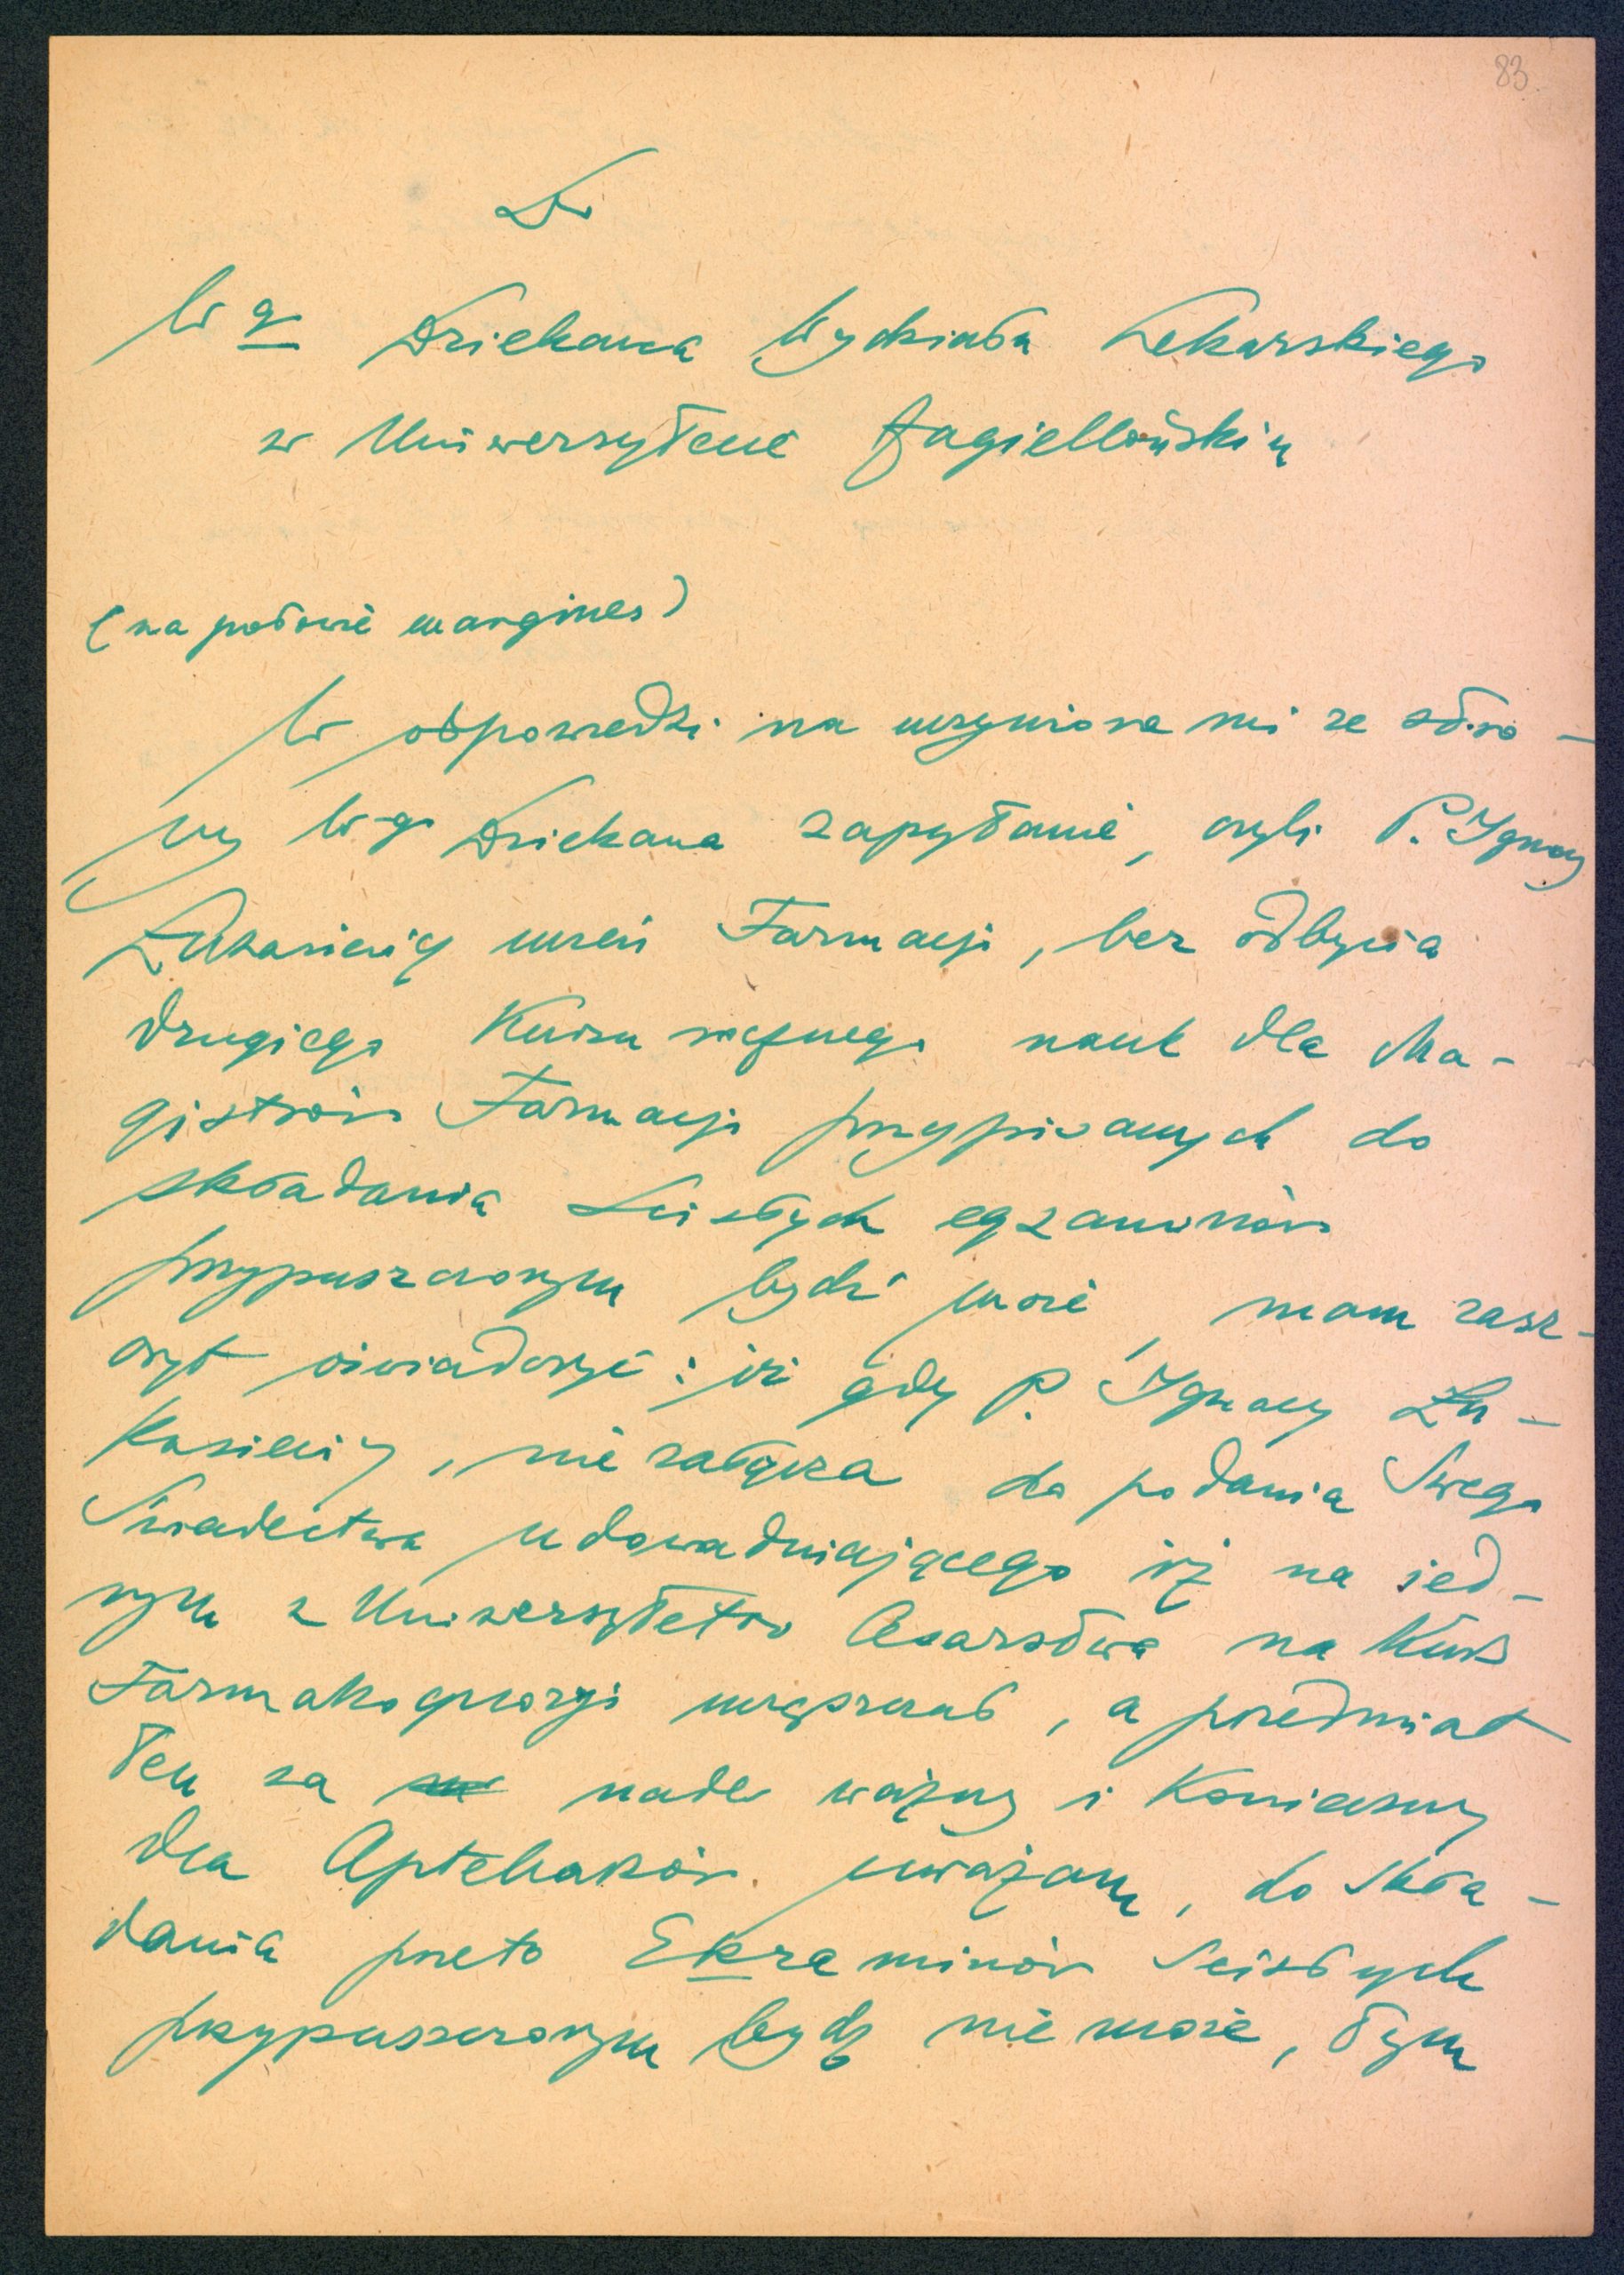 83
Do
W g Dziekana Wydziału Lekarskiego
w Uniwersytecie Jagiellońskim
(na połowie margines)
W odpowiedzi na uczynione mi ze stro-
ny W-go Dziekana zapytanie, czyli P. Ignacy
Łukasiewicz uczeń Farmacji, bez odbycia
drugiego Kursu rocznego nauk dla Ma-
gistrów Farmacji przypisanych do
składania Scisłych egzaminów
przypuszczonym bydź może, mam zasz-
czyt oświadczyć: iż gdy P. Ignacy Łu-
kasiewicz, nie załącza do podania Swego
Świadectwa udowadniającego iż na ied-
nym z Uniwersytetów Cesarstwa na Kurs
Farmakognozyi uczęszczał, a przedmiot
ten za nader ważny i Konieczny
dla Aptekarzów uważam, do Skła-
dania przeto Ekzaminów Scisłych
przypuszczonym bydź nie może, tym